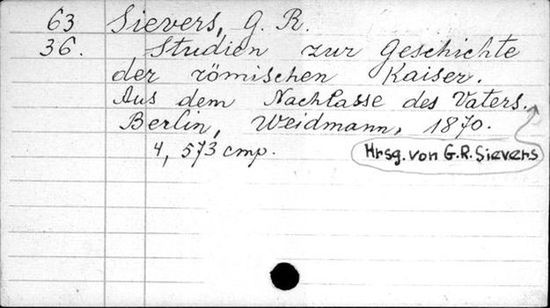 63 Sievers, G. R.
36. Studien zur Geschichte
der römischen Kaiser.
Aus dem Nachlasse des Vaters.
Berlin, Weidmann, 1870.
4, 573 cmp.
Hrsg. von G.R. Sievers